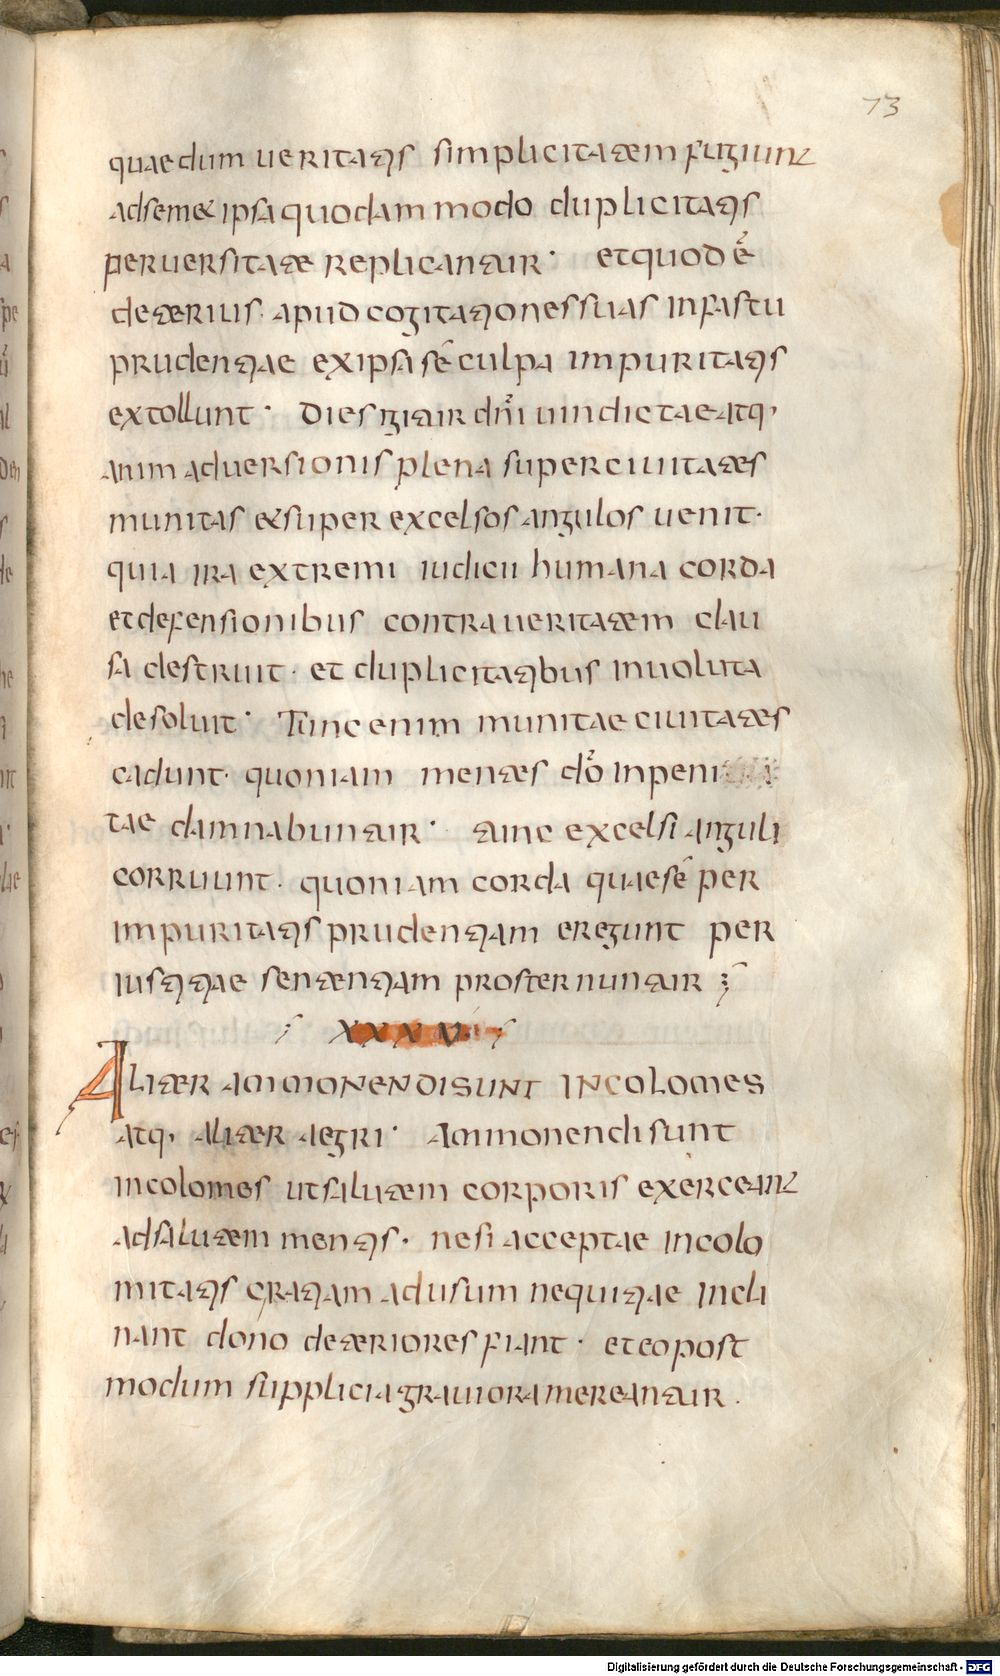 73
quae dum ueritatis simplicitatem fugiunt
ad semet ipsa quodammodo duplicitatis
peruersitate replicantur· et quod ē
deterius· apud cogitationes suas in fastu
prudentiae ex ipsa sē culpa impuritatis
extollunt· Dies igitur dn̄i uindictae atq·
animaduersionis plena super ciuitates
munitas & super excelsos angulos uenit·
quia ira extremi iudicii humana corda
et defensionibus contra ueritatem clau
sa destruit· et duplicitatibus inuoluta
desoluit· Tunc enim munitae ciuitates
cadunt· quoniam mentes dō inpeni
tae damnabuntur· tunc excelsi anguli
corruunt· quoniam corda quae sē per
impuritatis prudentiam eregunt per
iustitiae sententiam prosternuntur
XXXV
Aliter ammonendi sunt incolomes
atq· aliter aegri· Ammonendi sunt
incolomes ut salutem corporis exerceant
ad salutem mentis· ne si acceptae incolo
mitatis gratiam ad usum nequitiae incli
nant dono deteriores fiant· et eo post
modum supplicia grauiora mereantur.
Digitalisierung gefördert durch die Deutsche Forschungsgemeinschaft - DFG